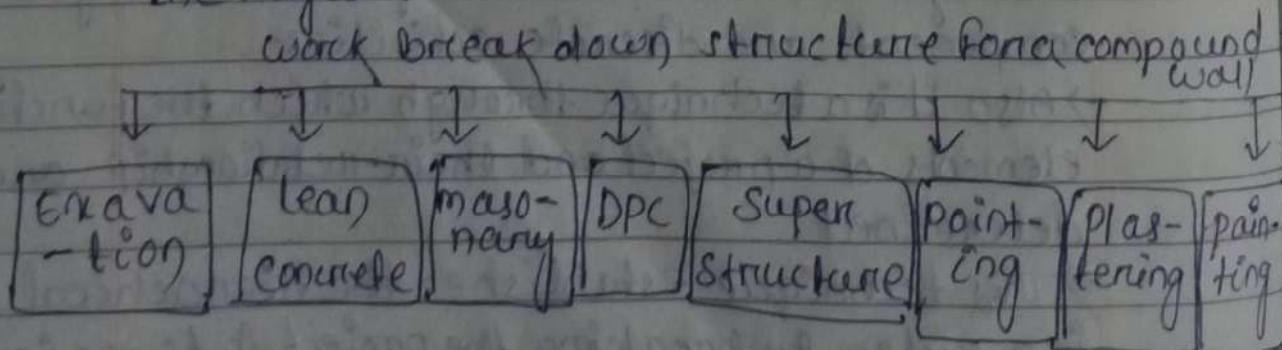 work break down structure for a compound
wall
Exava
-tion
lean
concrete
maso-
nary
DPC
Super
structure
point-
ing
Plas-
tering
pain-
ting